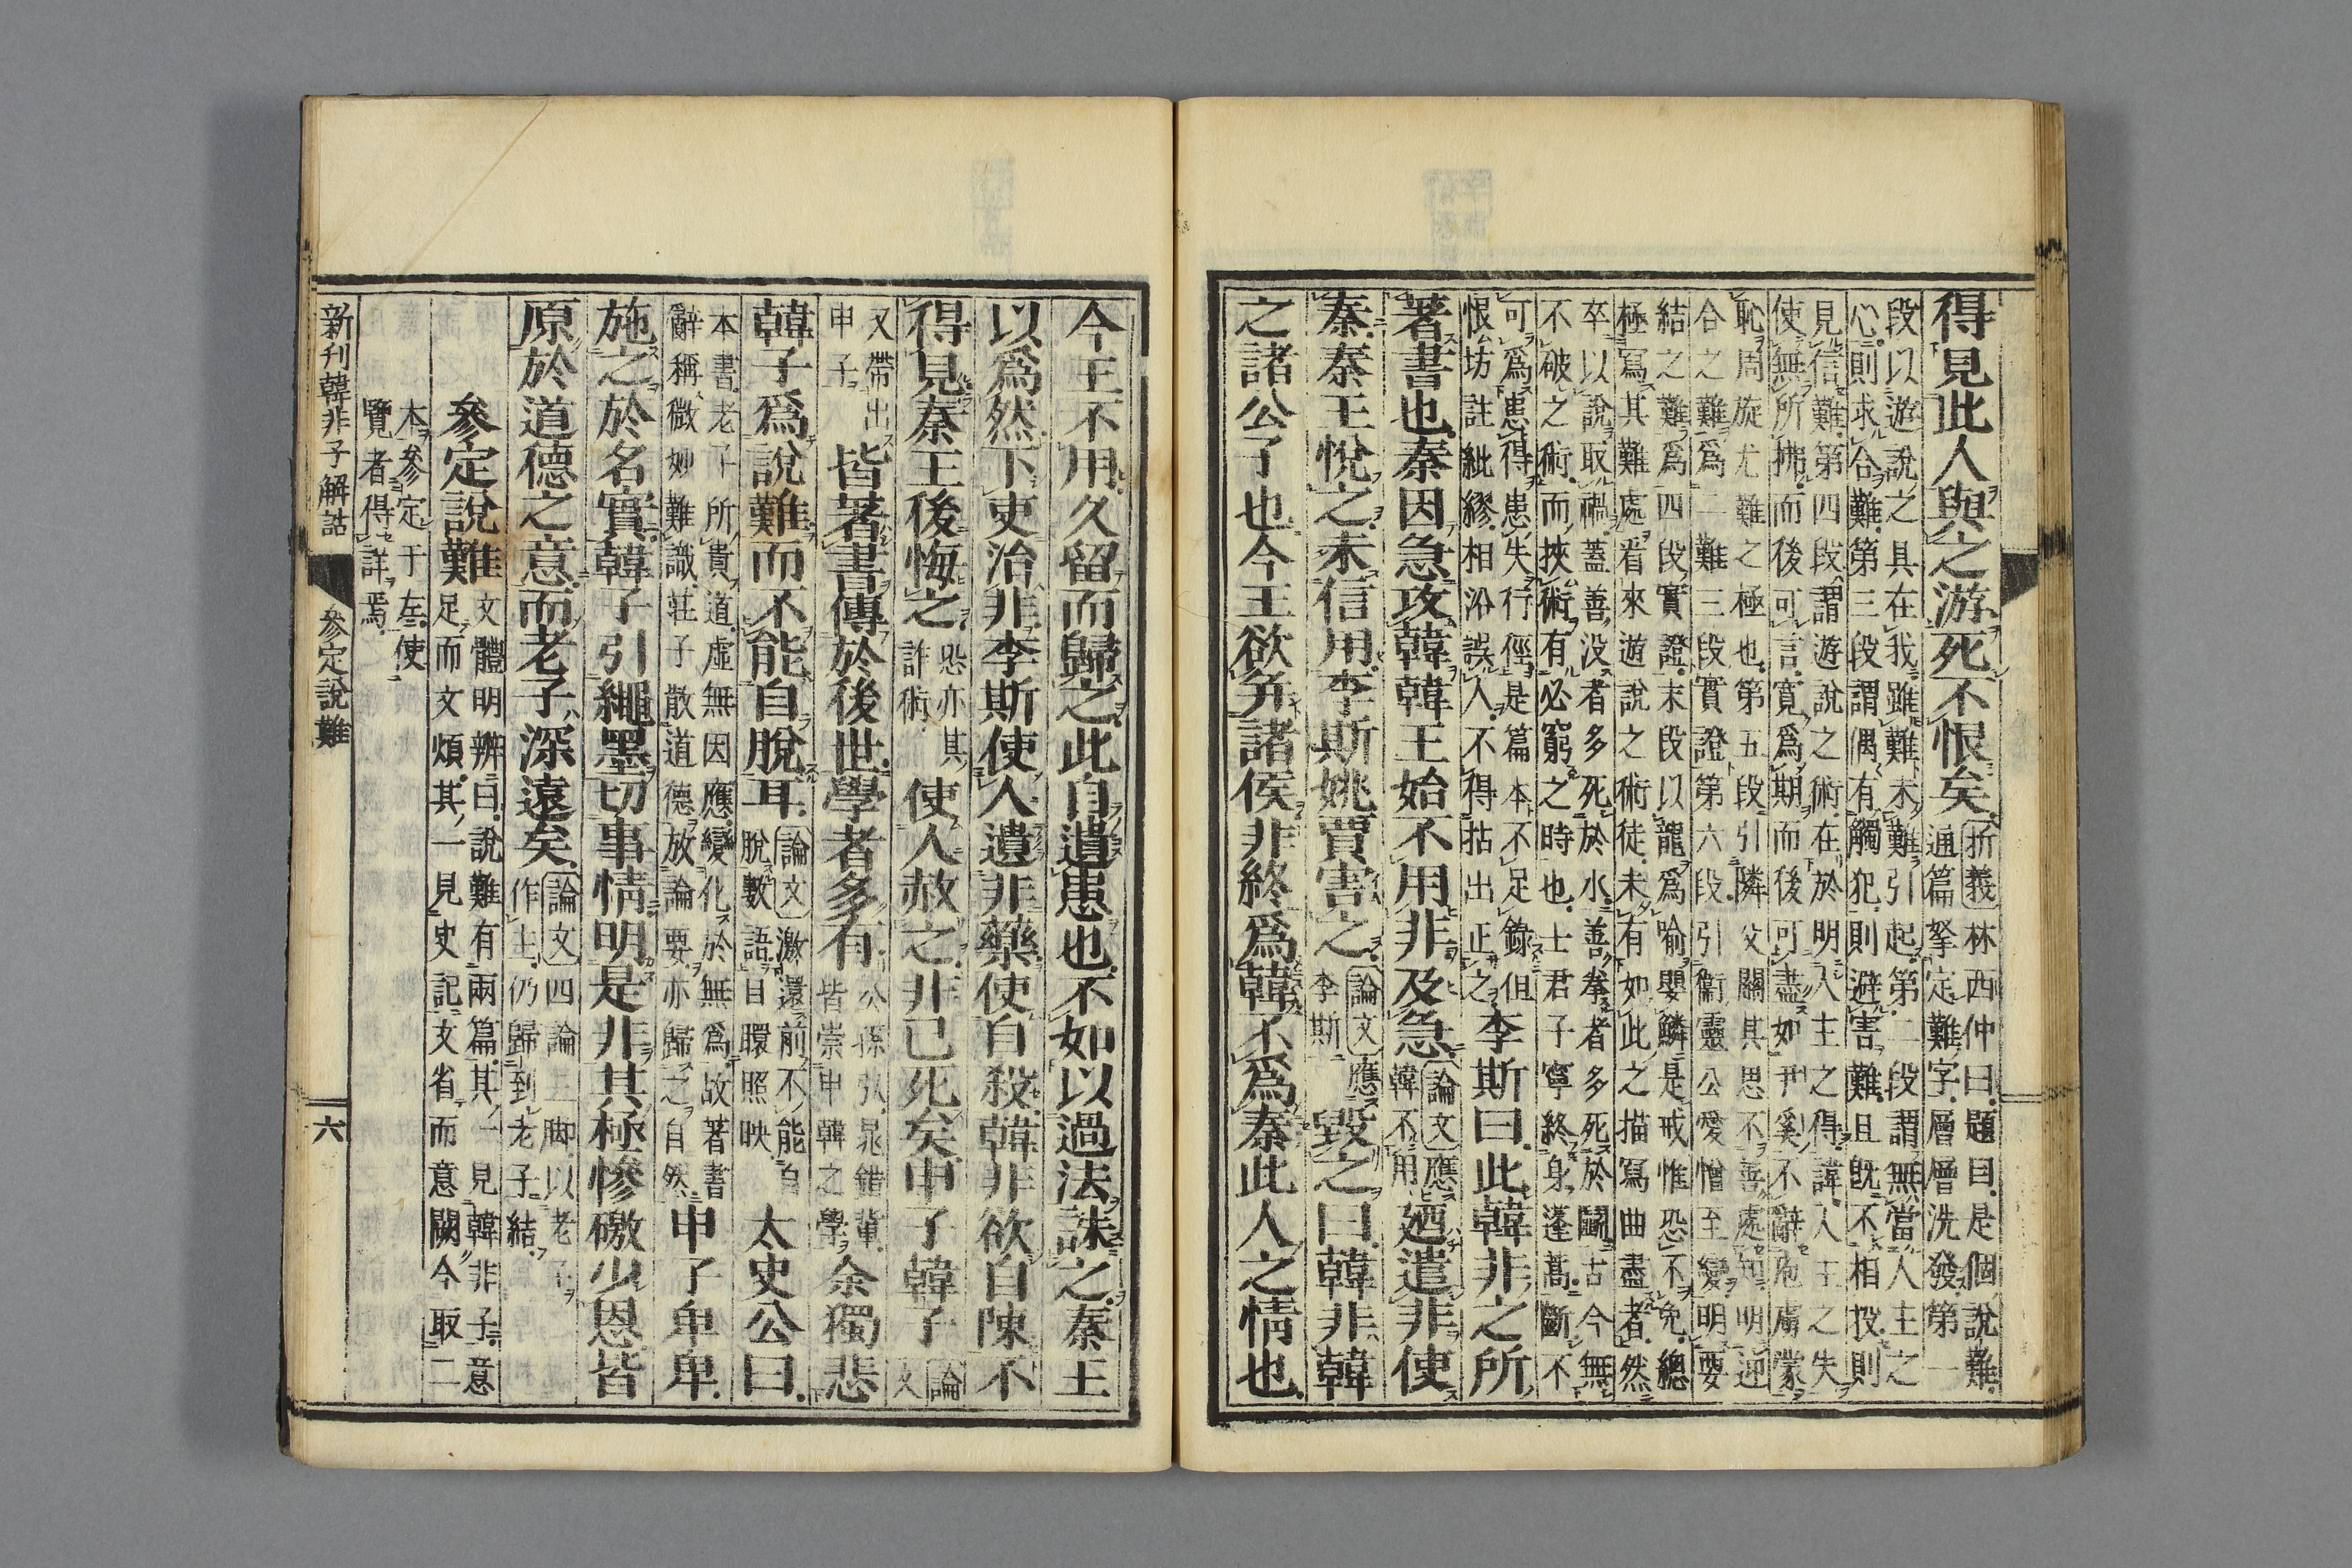 得見此人與之游死不恨矣析義林西仲曰題目是個說難
通篇拏定難字層層洗發第一
段以遊說之具在我雖難未難引起第二段謂無當人主之
心則求合難第三段謂偶有觸犯則避害難且既不相投則
見信難第四段謂遊說之術在於明人主之得諱人主之失
使無所拂而後可言寬爲期而後可盡如尹奚不辭庖虜蒙
恥周旋尤難之極也第五段引隣父關其思不善處知明迎
合之難爲二難三段實證第六段引衞靈公愛憎至變明要
結之難爲四段實證末段以龍爲喻嬰鱗是戒惟恐不免總
極寫其難處看來遊說之術徒未有如此之描寫曲盡者然
卒以說取禍蓋善没者多死於水善拳者多死於鬭古今無
不破之術而挾術有必窮之時也士君子寧終身蓬蒿斷不
可爲患得患失行徑是篇本不足錄但
恨坊註紕繆相沿誤人不得拈出正之李斯曰此韓非之所
著書也秦因急攻韓韓王始不用非及急論文應韓不用迺遣非使
秦秦王悅之未信用李斯姚賈害之論文應李斯毀之曰韓非韓
之諸公子也今王欲并諸侯非終爲韓不爲秦此人之情也
今王不用久留而歸之此自遺患也不如以過法誅之秦王
以爲然下吏治非李斯使人遺非藥使自殺韓非欲自陳不
得見秦王後悔之恐亦其詐術使人赦之非已死矣申子韓子論文
又帶出申子皆著書傳於後世學者多有公孫弘晁錯輩皆崇申韓之學余獨悲
韓子爲說難而不能自脫耳論文激還前不能自脫數語目環照映太史公曰
本書老子所貴道虛無因應變化於無爲故著書
辭稱微妙難識莊子散道德放論要亦歸之自然申子卑卑
施之於名實韓子引繩墨切事情明是非其極慘礉少恩皆
原於道德之意而老子深遠矣論文四論三脚以老子
作主仍歸到老子結
參定說難文體明辨曰說難有兩篇其一見韓非子意
足而文煩其一見史記文省而意闕今取二
本參定于左使
覽者得詳焉
新刊韓非子解詁
參定說難
六